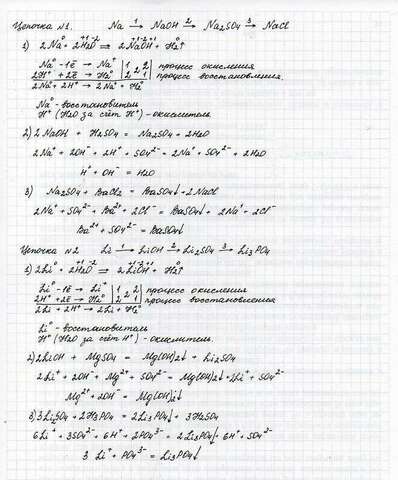 Цепочка №1. Na 1→ NaOH 2→ Na2SO4 3→ NaCl
1) 2Na⁰ + 2H2⁺¹O⁻² ⇒ 2Na⁺¹O⁻²H⁺¹ + H2⁰↑
Na⁰ - 1ē → Na⁺ | 1 | 2 | 2 | процесс окисления
2H⁺ + 2ē → H2⁰ | 2 | 2 | 1 | процесс восстановления.
2Na⁰ + 2H⁺ → 2Na⁺ + H2⁰
Na⁰ - восстановитель
H⁺ (H2O за счёт H⁺) - окислитель
2) 2NaOH + H2SO4 = Na2SO4 + 2H2O
2Na⁺ + 2OH⁻ + 2H⁺ + SO4²⁻ = 2Na⁺ + SO4²⁻ + 2H2O
H⁺ + OH⁻ = H2O
3) Na2SO4 + BaCl2 = BaSO4↓ + 2NaCl
2Na⁺ + SO4²⁻ + Ba²⁺ + 2Cl⁻ = BaSO4↓ + 2Na⁺ + 2Cl⁻
Ba²⁺ + SO4²⁻ = BaSO4↓
Цепочка №2 Li 1→ LiOH 2→ Li2SO4 3→ Li3PO4
1) 2Li⁰ + 2H2⁺¹O⁻² ⇒ 2Li⁺¹O⁻²H⁺¹ + H2⁰↑
Li⁰ - 1ē → Li⁺ | 1 | 2 | 2 | процесс окисления
2H⁺ + 2ē → H2⁰ | 2 | 2 | 1 | процесс восстановления
2Li + 2H⁺ → 2Li + H2⁰
Li⁰ - восстановитель
H⁺ (H2O за счёт H⁺) - окислитель.
2) 2LiOH + MgSO4 = Mg(OH)2↓ + Li2SO4
2Li⁺ + 2OH⁻ + Mg²⁺ + SO4²⁻ = Mg(OH)2↓ + 2Li⁺ + SO4²⁻
Mg²⁺ + 2OH⁻ = Mg(OH)2↓
3) 3Li2SO4 + 2H3PO4 = 2Li3PO4↓ + 3H2SO4
6Li⁺ + 3SO4²⁻ + 6H⁺ + 2PO4³⁻ = 2Li3PO4↓ + 6H⁺ + SO4²⁻
3 Li⁺ + PO4³⁻ = Li3PO4↓